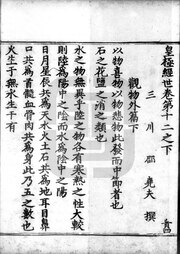 皇極經世卷第十二之下
三川邵堯夫撰
觀物外篇下
以物喜物以物悲物此發而中節者也
石之花鹽之消之類也
水之物無異乎陸之物各有寒熱之性大較
則陸為陽中之陰而水為陰中之陽
日月星辰共為天水火土石共為地耳目鼻
口共為首髓血骨肉共為身此乃五之數也
火生于無水生于有